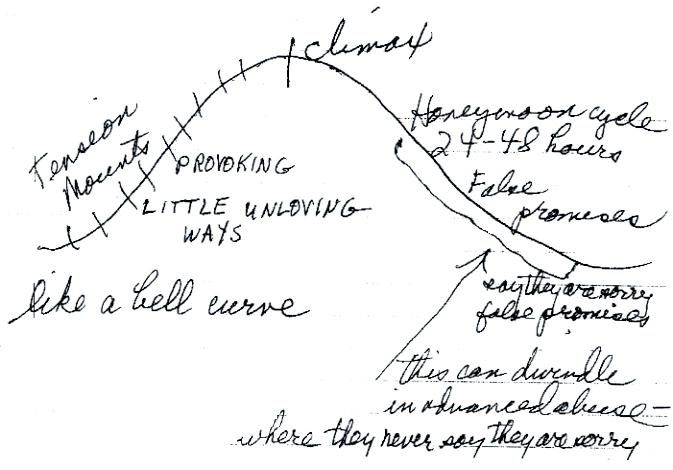 climax
Tension
Mounts
PROVOKING
LITTLE UNLOVING
WAYS
Honeymoon cycle
24-48 hours
False
promises
say they are sorry
false promises
like a bell curve
this can dwindle
in advanced abuse -
where they never say they are sorry